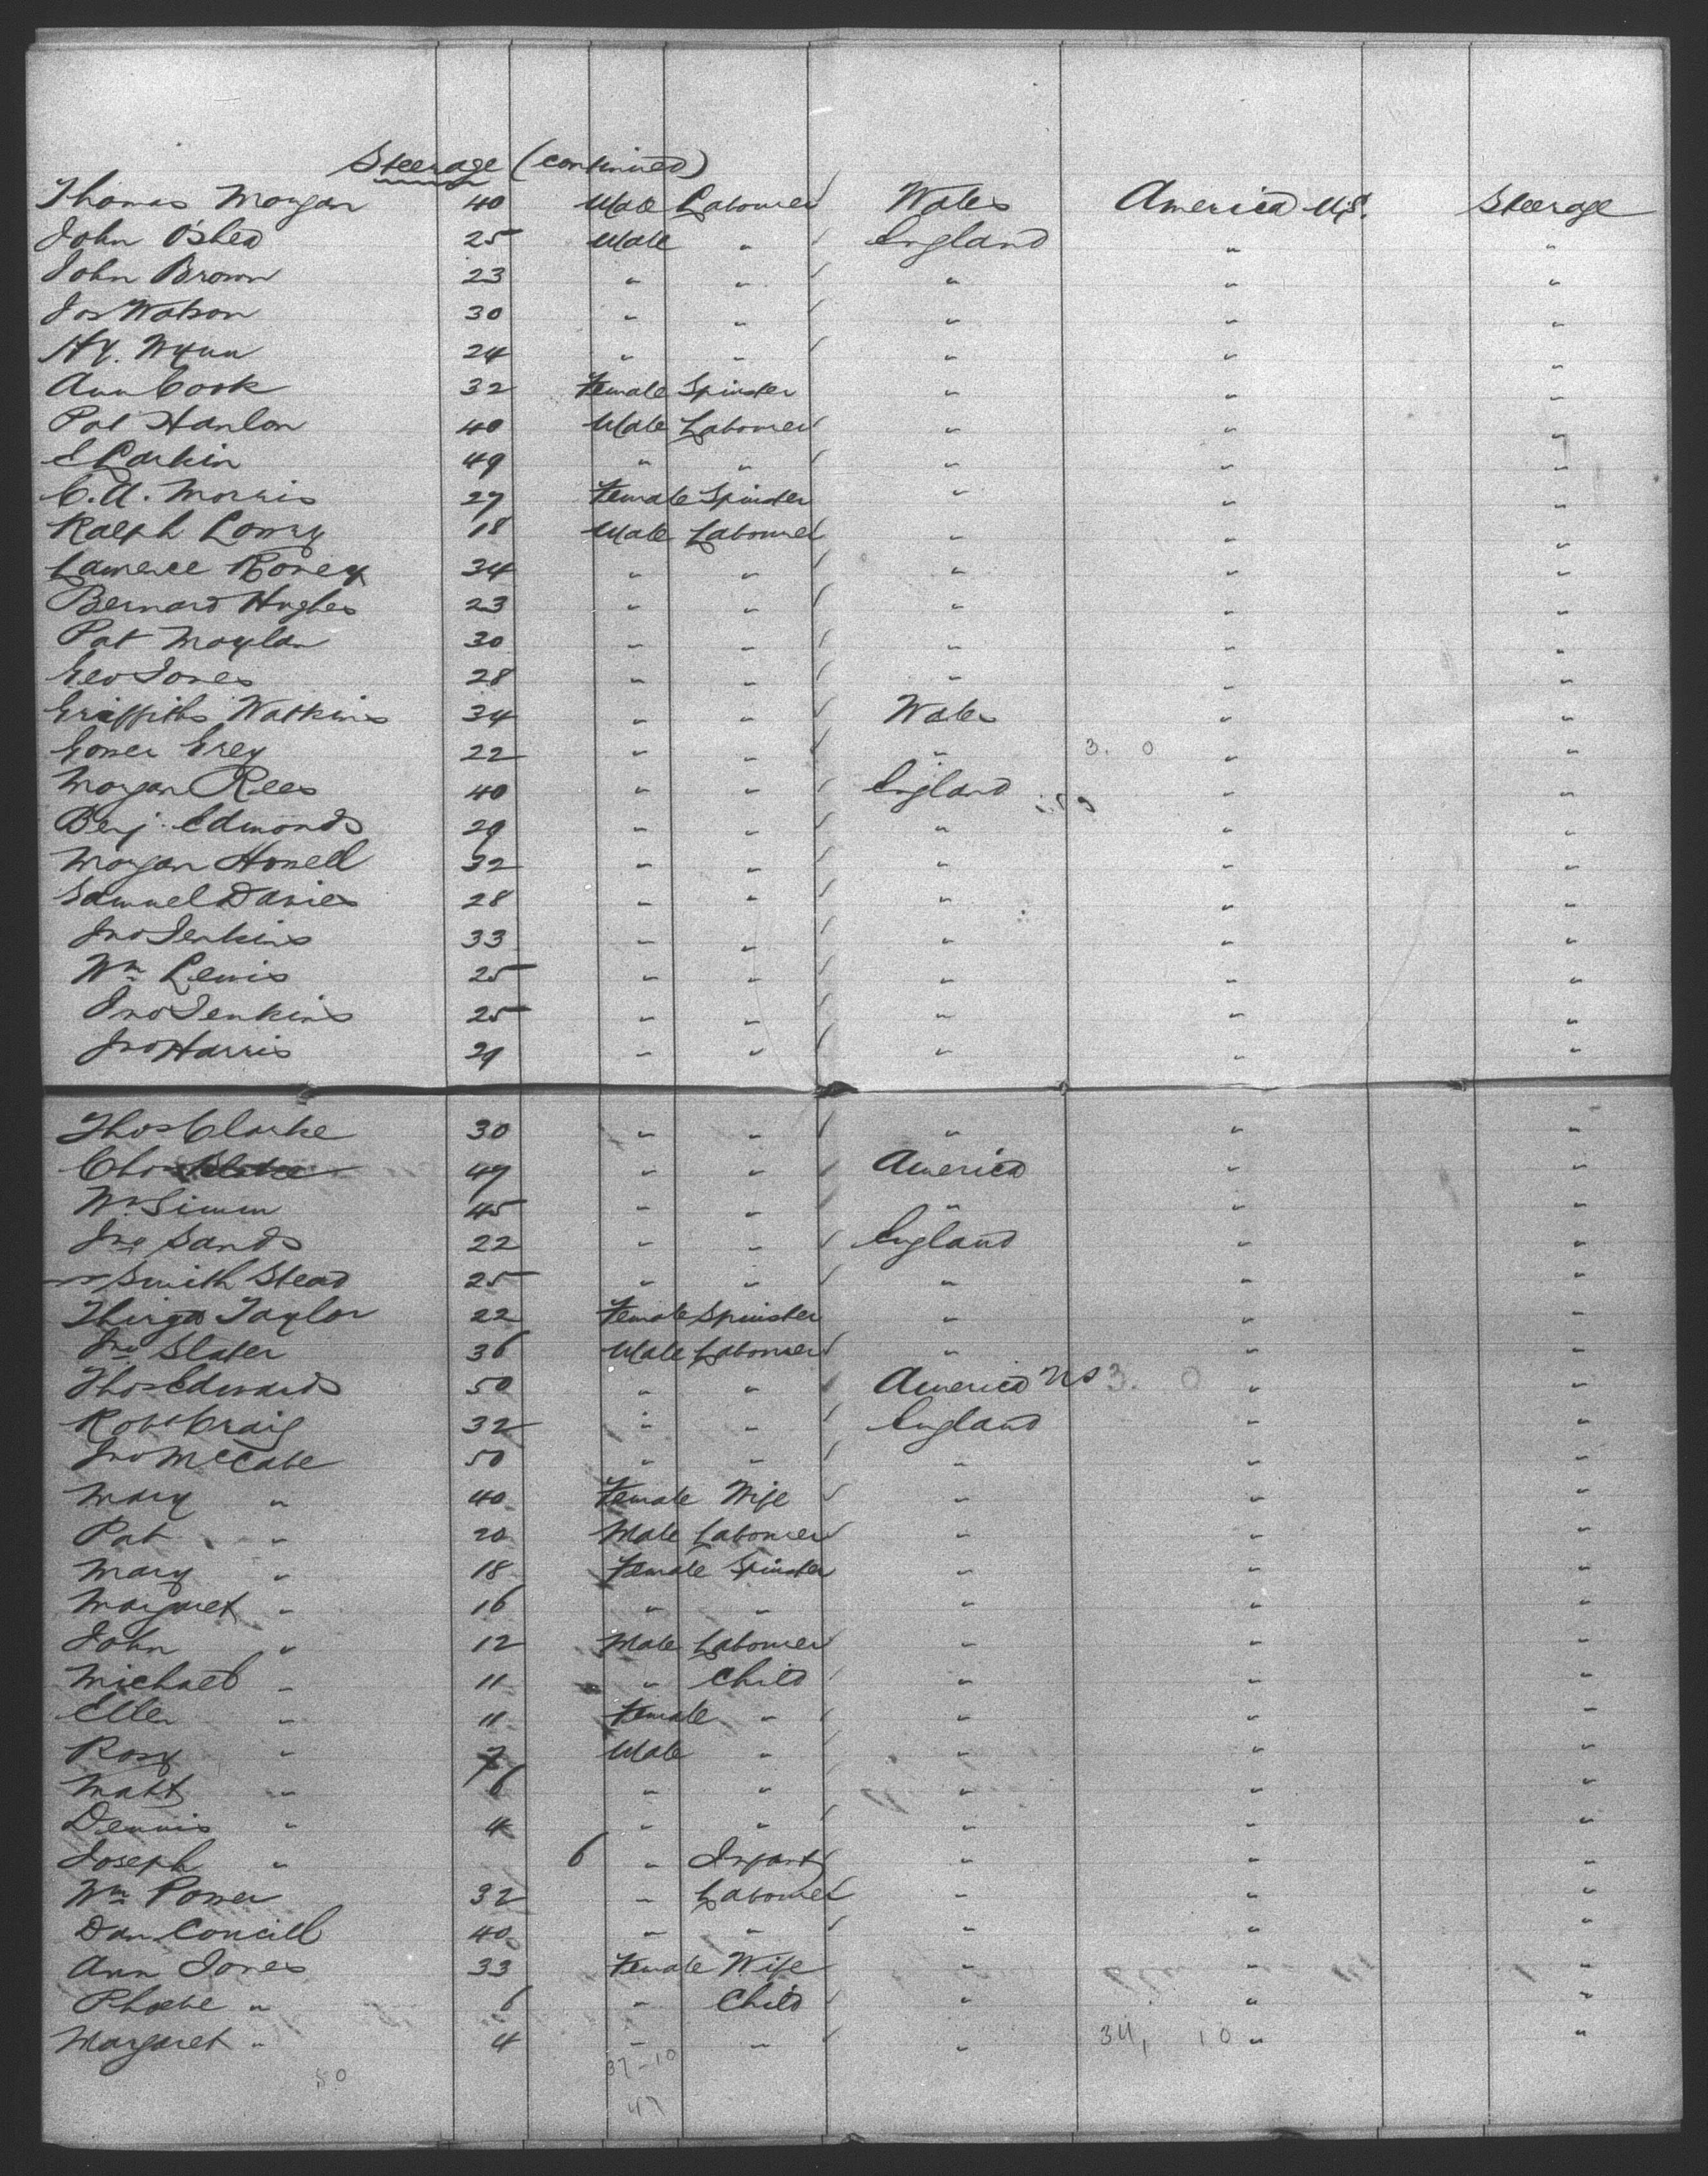 Steerage (continued)
Thomas Morgan 40 Male Labourer Wales America U.S. Steerage
John O'Shea 25 Male " England " "
John Brown 23 " " " " "
Jos Watson 30 " " " " "
Hy. Wynn 24 " " " " "
Ann Cook 32 Female Spinster " " "
Pat Hanlon 40 Male Labourer " " "
E Larkin 49 " " " " "
C. A. Morris 27 Female Spinster " " "
Ralph Lowry 18 Male Labourer " " "
Lawrence Roney 34 " " " " "
Bernard Hughes 23 " " " " "
Pat Moylan 30 " " " " "
Geo Jones 28 " " " " "
Griffiths Watkins 34 " " Wales " "
Gower Grey 22 " " " 3. 0 " "
Morgan Rees 40 " " England " "
Benj. Edmonds 29 " " " " "
Morgan Howell 32 " " " " "
Samuel Davies 28 " " " " "
Jno Jenkins 33 " " " " "
Wm Lewis 25 " " " " "
Jno Jenkins 25 " " " " "
Jno Harris 29 " " " " "
Thos Clarke 30 " " " " "
Chas 49 " " America " "
Wm Simm 45 " " " " "
Jno Sands 22 " " England " "
Smith Stead 25 " " " " "
Taylor 22 Female Spinster " " "
Jno Slater 36 Male Labourer " " "
Thos Edwards 50 " " America US 3. 0 " "
Robt Craig 32 " " England " "
Jno McCabe 50 " " " " "
Mary " 40 Female Wife " " "
Pat " 20 Male Labourer " " "
Mary " 18 Female Spinster " " "
Margaret " 16 " " " " "
John " 12 Male Labourer " " "
Michael " 11 " Child " " "
Ellen " 11 Female " " " "
Rosy " 7 Male " " " "
Matt " 6 " " " " "
Dennis " 4 " " " " "
Joseph " 6 " Infant " " "
Wm Power 32 " Labourer " " "
Dan 40 " " " " "
Ann Jones 33 Female Wife " " "
Phoebe " 6 " Child " " "
Margaret " 4 " " " 34, 10 " "
50 37-10
47